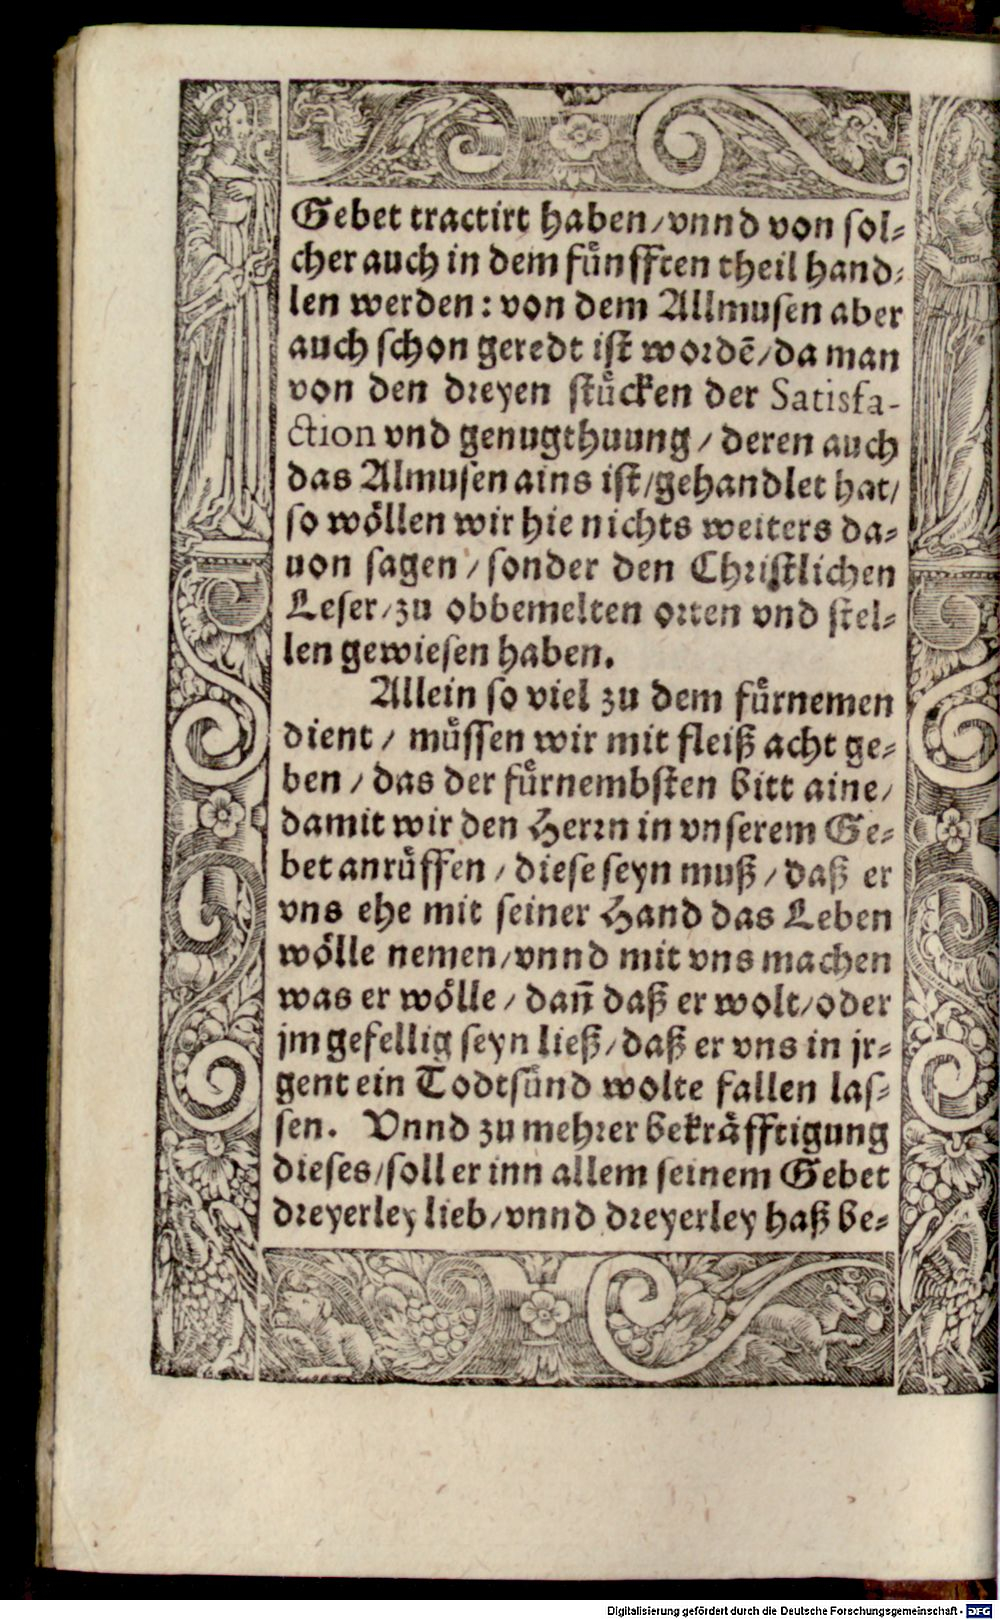 Gebet tractirt haben/vnnd von sol⸗
cher auch in dem fuͤnfften theil hand⸗
len werden: von dem Allmusen aber
auch schon geredt ist wordē/da man
von den dreyen stuͤcken der Satisfa-
ction vnd genugthuung / deren auch
das Almusen ains ist/gehandlet hat/
so woͤllen wir hie nichts weiters da⸗
uon sagen / sonder den Christlichen
Leser/zu obbemelten orten vnd stel⸗
len gewiesen haben.
Allein so viel zu dem fuͤrnemen
dient / muͤssen wir mit fleiß acht ge⸗
ben / das der fuͤrnembsten bitt aine/
damit wir den Herrn in vnserem Ge⸗
bet anruͤffen / diese seyn muß / daß er
vns ehe mit seiner Hand das Leben
woͤlle nemen/vnnd mit vns machen
was er woͤlle / dañ daß er wolt/oder
jm gefellig seyn ließ/daß er vns in jr⸗
gent ein Todtsuͤnd wolte fallen las⸗
sen. Vnnd zu mehrer bekraͤfftigung
dieses/soll er inn allem seinem Gebet
dreyerley lieb/vnnd dreyerley haß be⸗
Digitalisierung gefördert durch die Deutsche Forschungsgemeinschaft - DFG